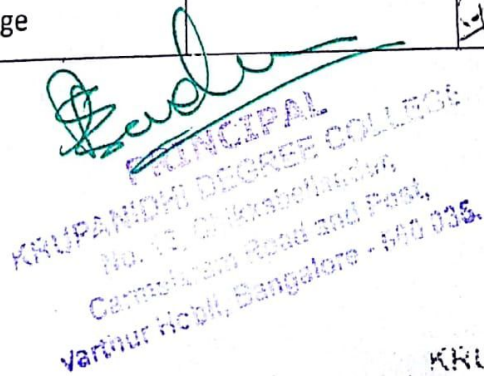 ge
PRINCIPAL
KRUPANIDHI DEGREE COLLEGE
No. 12,
Carmelaram Road and Post,
Varthur Hobli, Bangalore - 560 035.
KRU